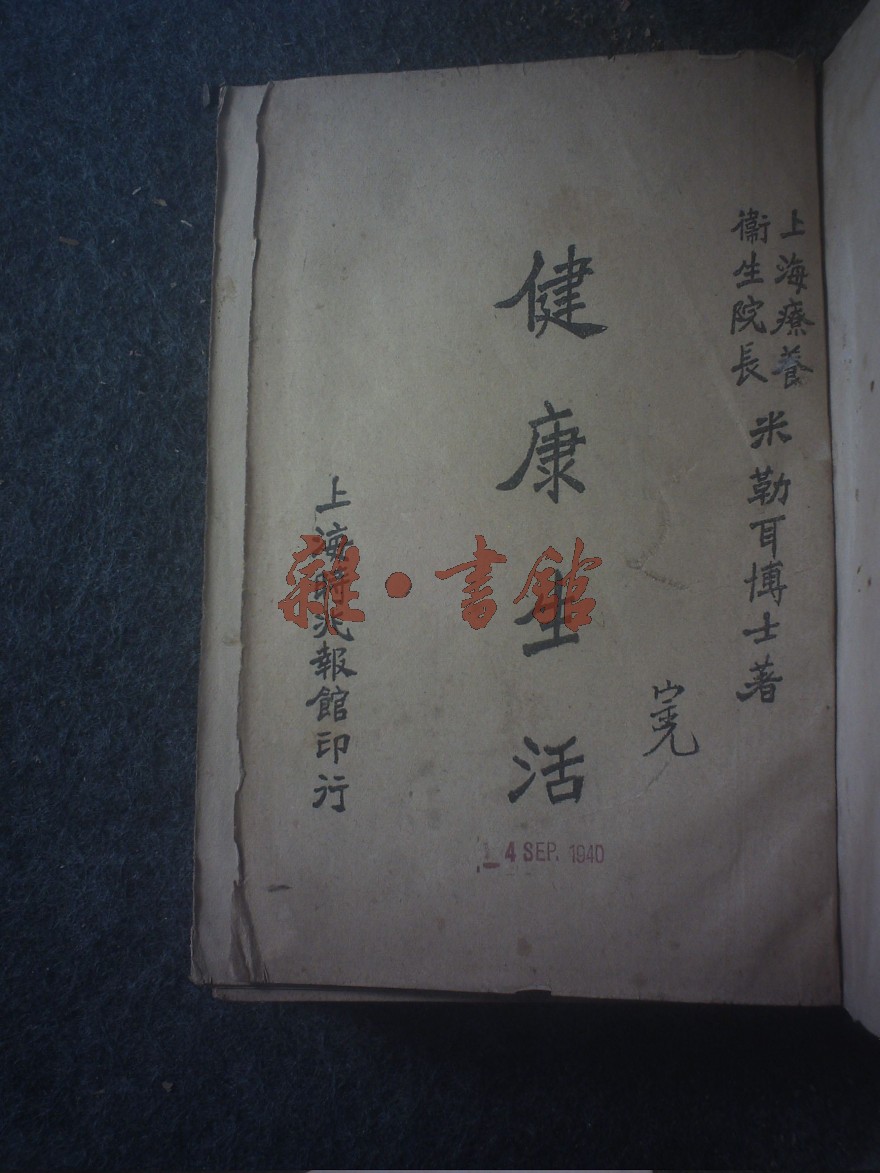 上海療養
衞生院長
米勒耳博士著
完
健康生活
4 SEP. 1940
上海時兆報館印行
雜·書館